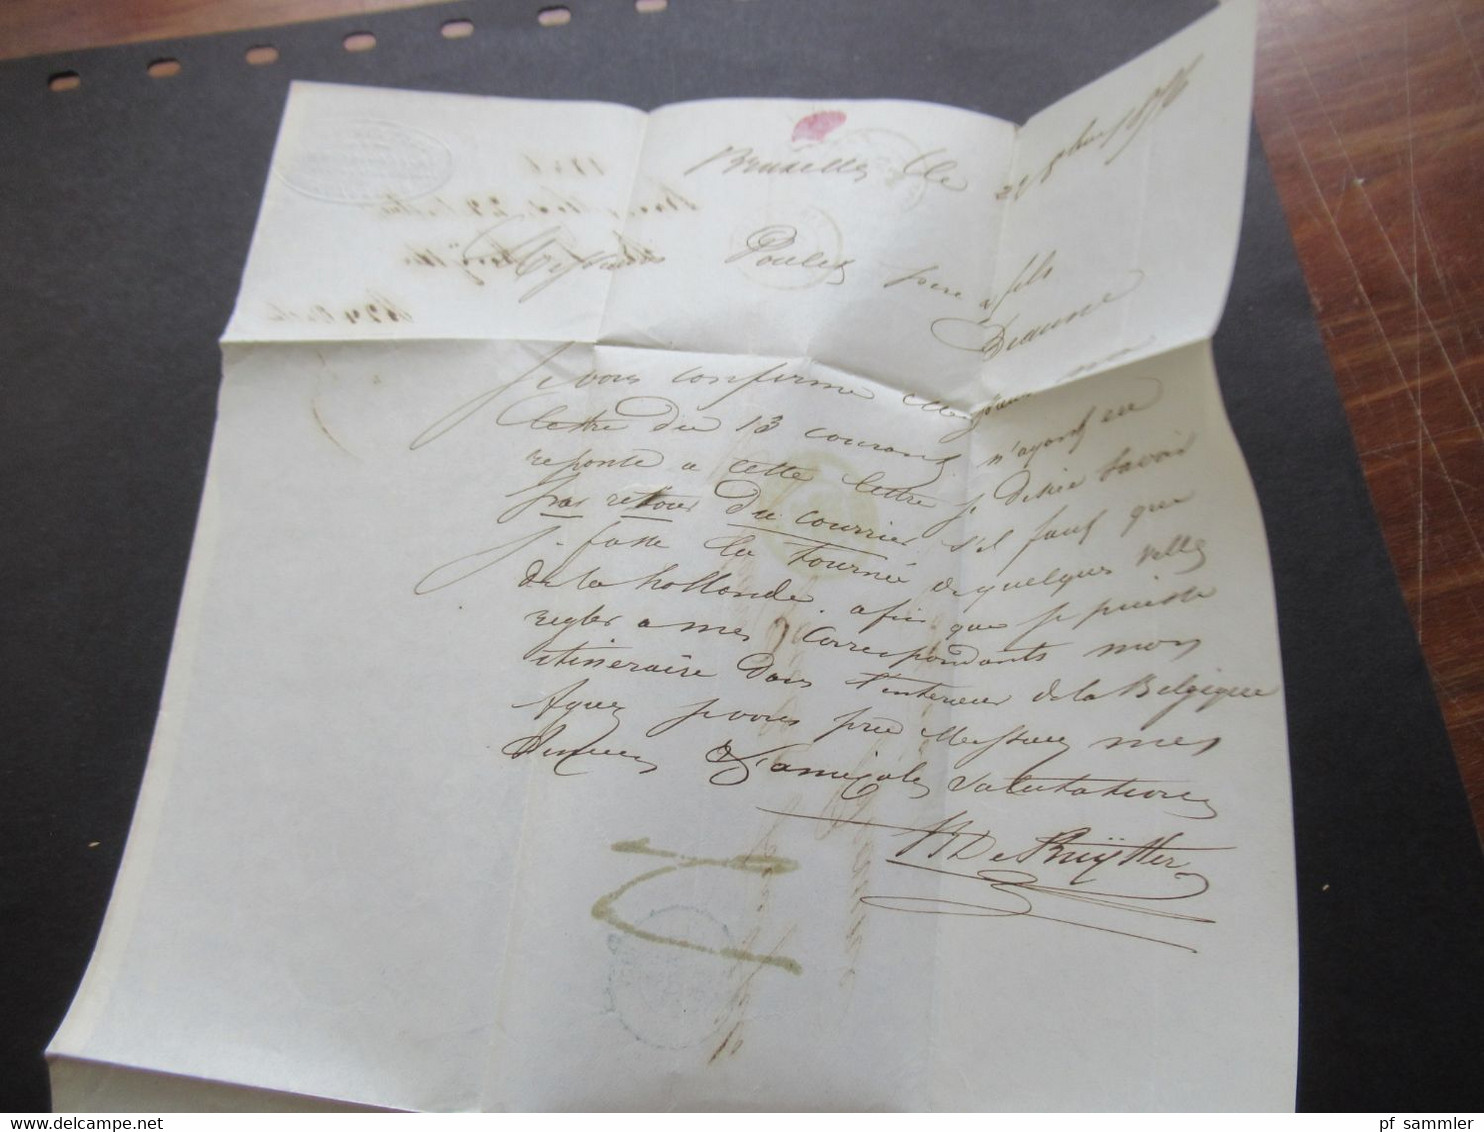 Bruxelles le 22 8bre 1856
Messieurs Poulet pere & fils
Beaune
Je vous confirme Messieurs ma
lettre du 13 courant, n'ayant eu
reponse a cette lettre je désire savoir
par retour du courrier s'il faut que
je fasse la tournée de quelques villes
de la hollande. afin que je puisse
regler a mes Correspondants mon
itineraire dans l'interieur de la Belgique
Agreez je vous prie Messieurs mes
sinceres & amicales salutations
De Ruÿtter
1856
pf sammler